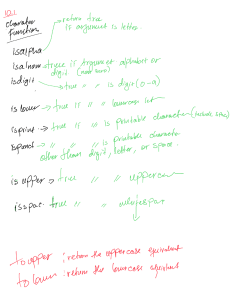 10.1
character
functions
isalpha → return true
is argument is letter
isalnum → true is Argument alphabet or
digit
isdigit → true " " is digit (0-9)
islower → true is " " lowercase let
isprint → true " " is printable character (
" " " is printable character
other than digit, letter, or space.
isupper → true " " uppercase
isspac. true " " whitespac
toupper : return the uppercase equivalent
tolower : return the lowercase equivalent